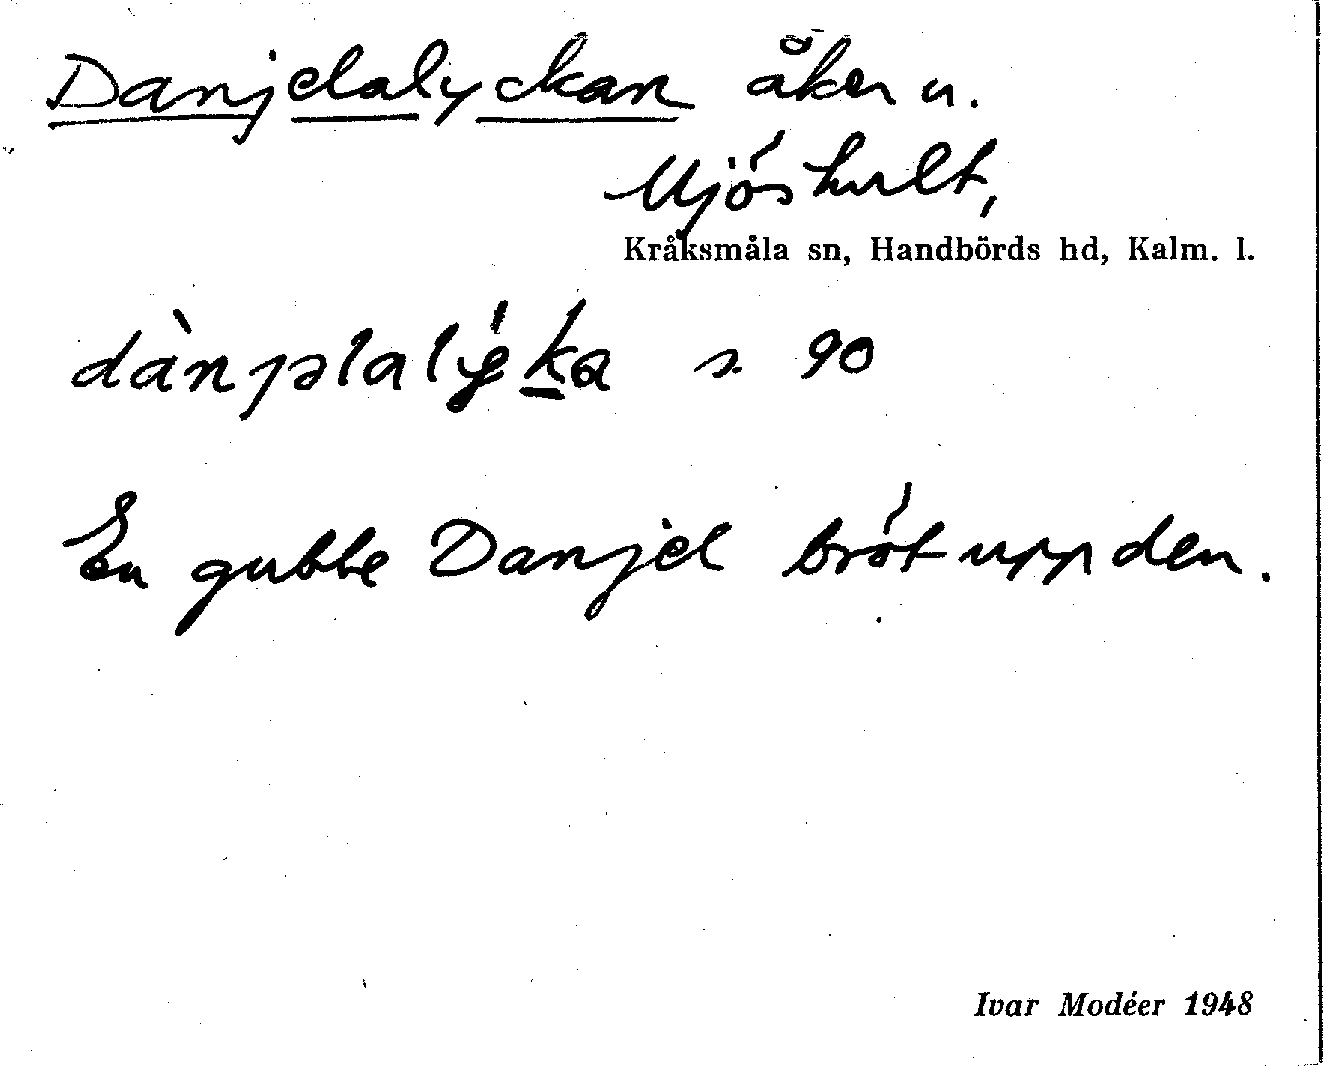 Danjelalyckan åker u.
Mjöshult,
Kråksmåla sn, Handbörds hd, Kalm. l.
s. 90
En gubbe Danjel bröt upp den.
Ivar Modéer 1948